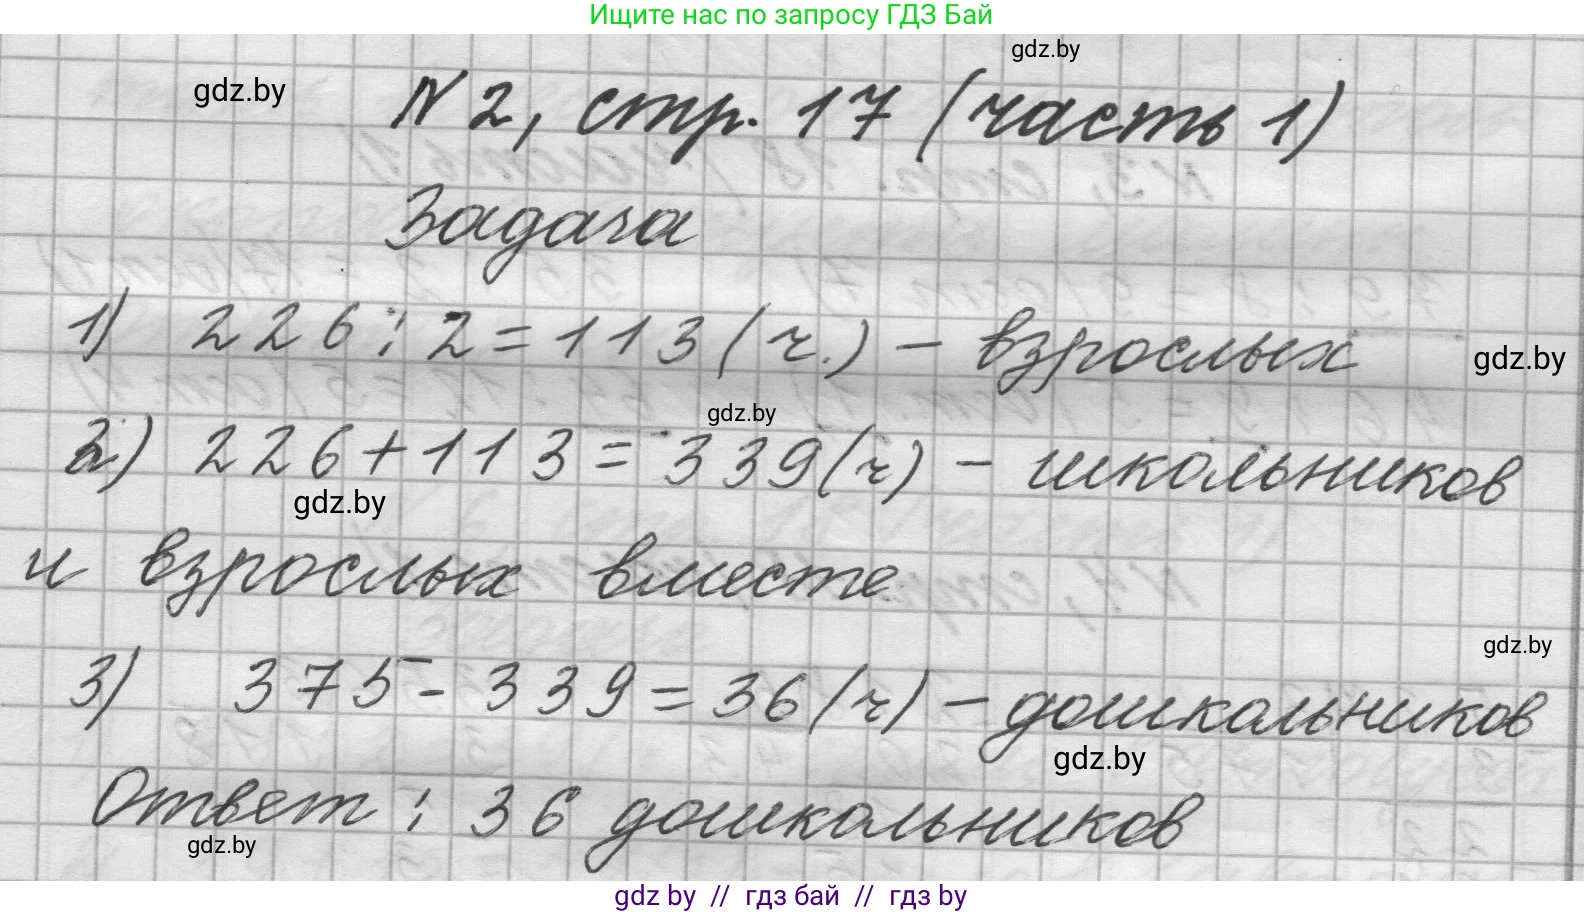 Ищите нас по запросу ГДЗ Бай
gdz.by
gdz.by
N 2, стр. 17 (часть 1)
Задача
1) 226 : 2 = 113 (ч.) – взрослых
gdz.by
gdz.by
2) 226 + 113 = 339 (ч) – школьников
gdz.by
и взрослых вместе
gdz.by
3) 375 - 339 = 36 (ч) – дошкальников
gdz.by
Ответ : 36 дошкальников
gdz.by
gdz by // гдз бай // гдз by